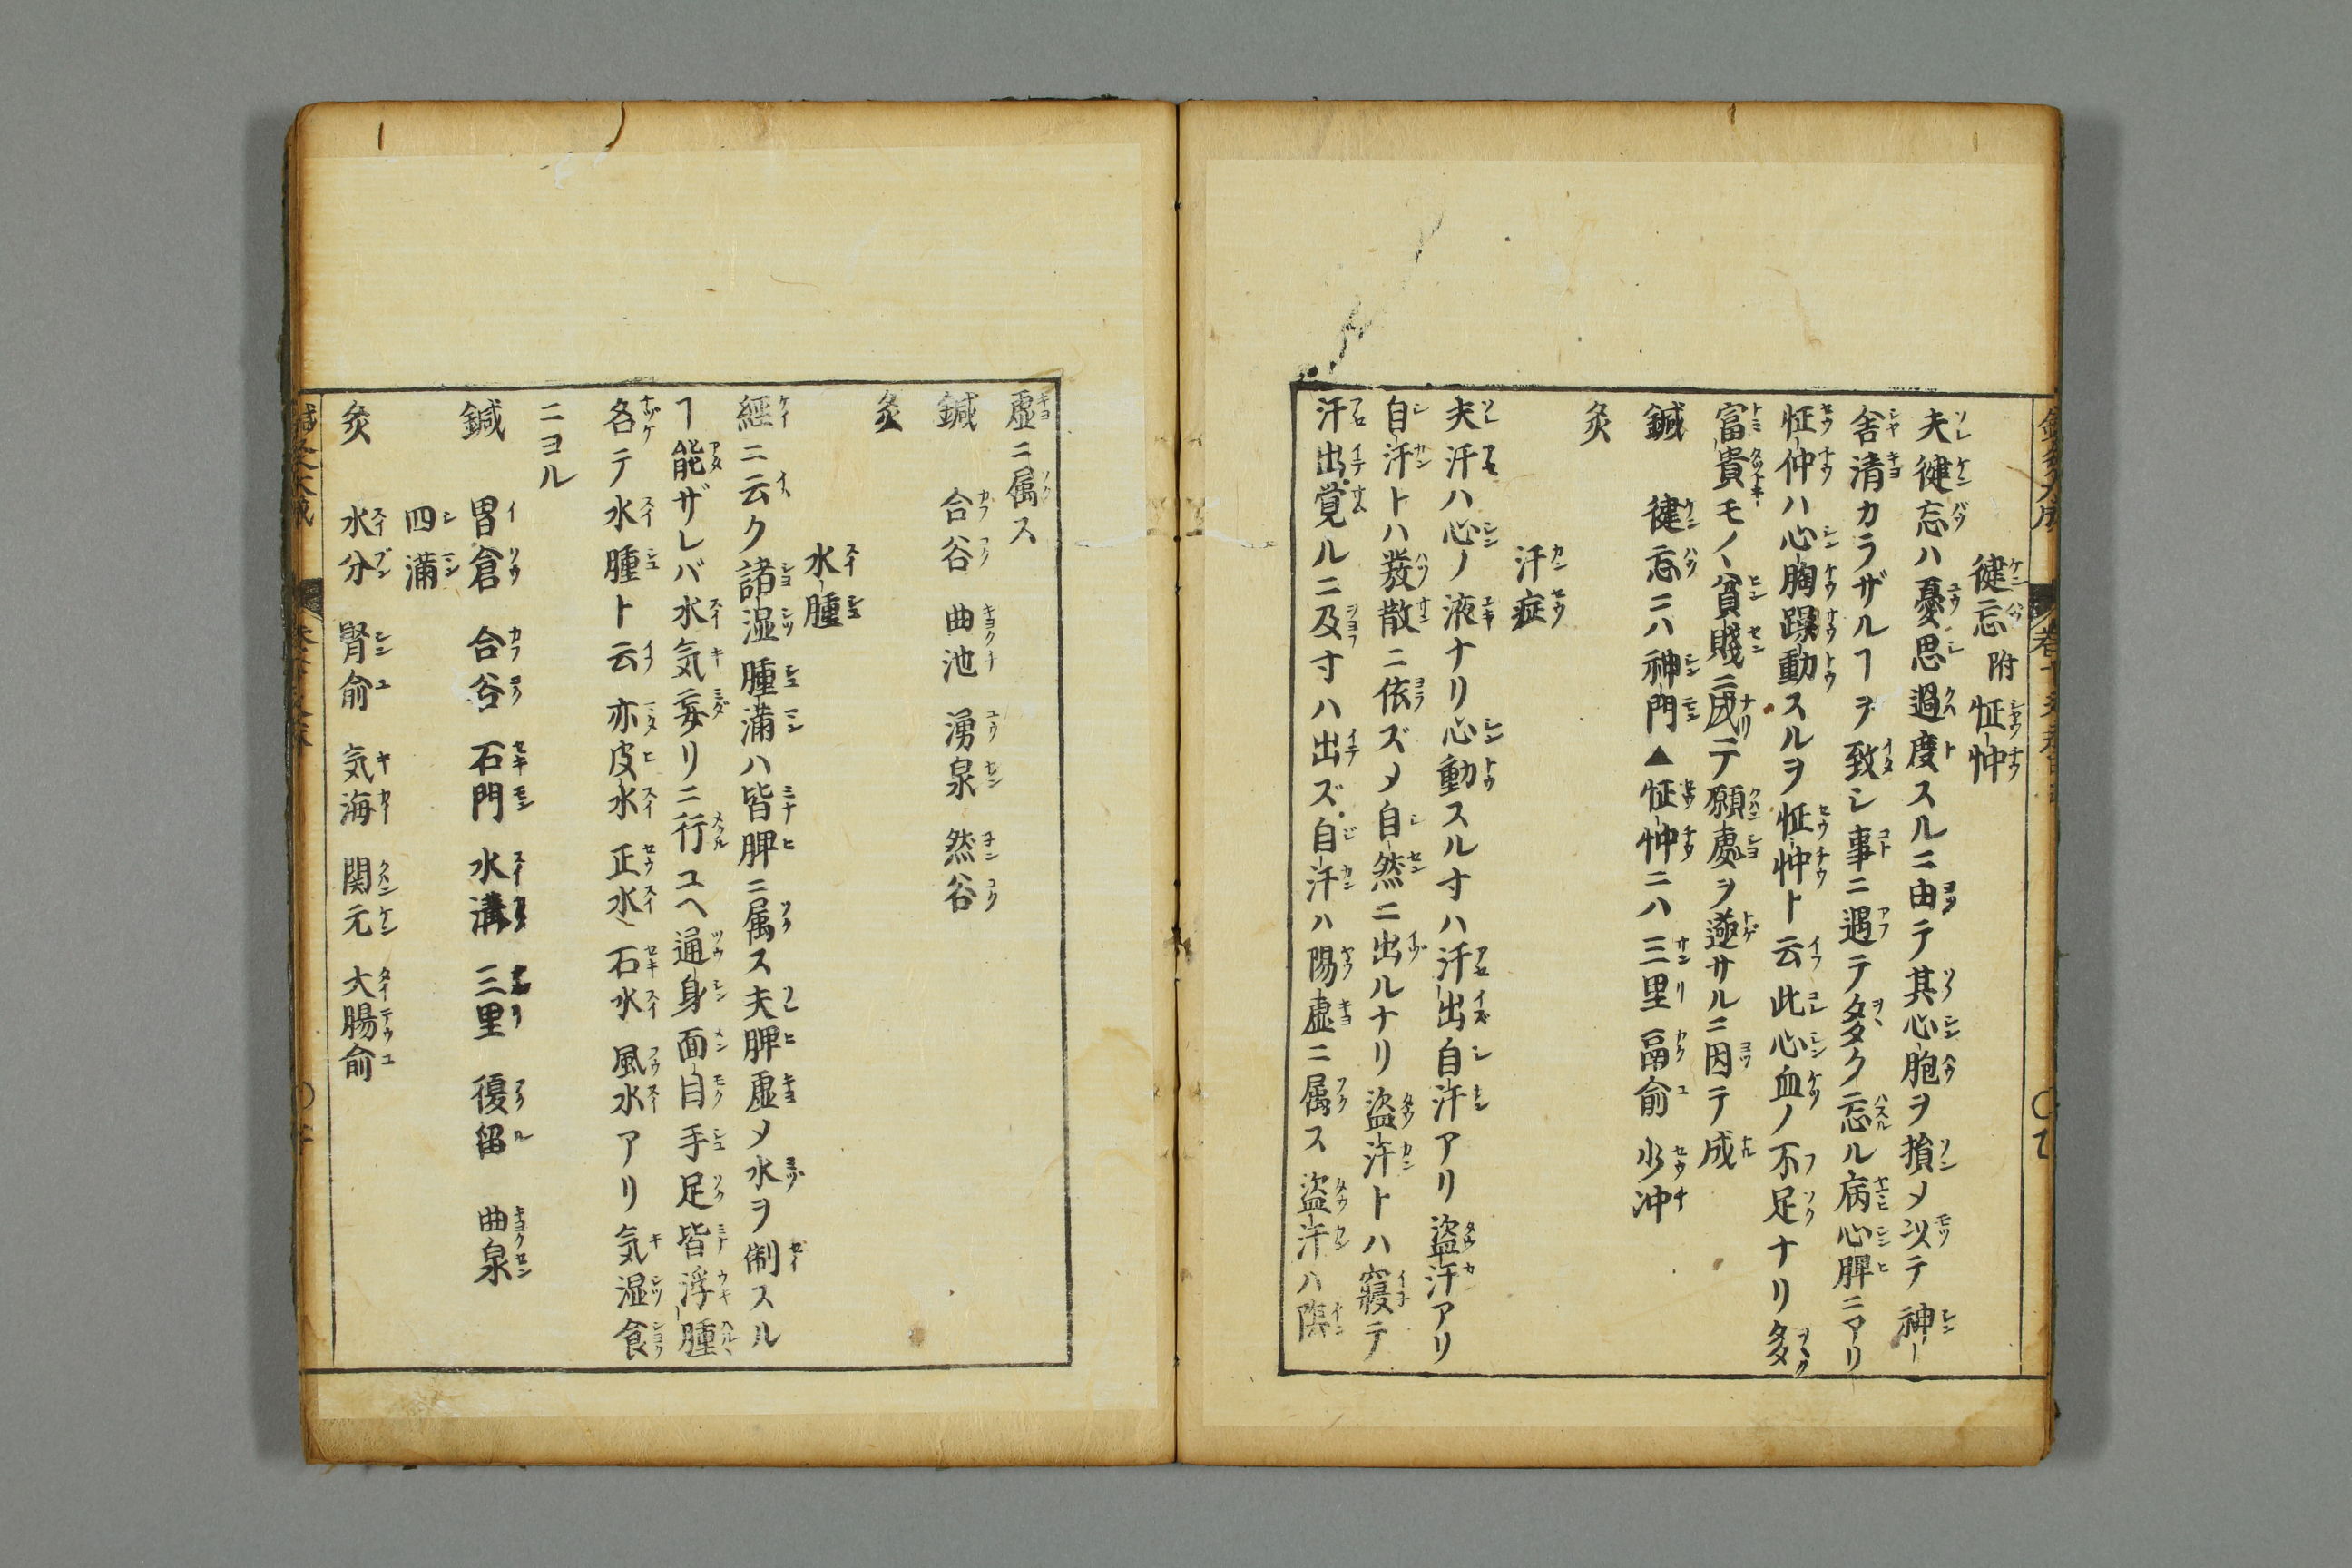 健忘 附 怔忡
夫健忘ハ憂思過度スルニ由テ其心胞ヲ損メ以テ神
舎清カラザルヿヲ致シ事ニ遇テ多ク忘ル病心脾ニアリ
怔仲ハ心胸躁動スルヲ怔忡ト云此心血ノ不足ナリ多
富貴モノヽ貧賤ニ成テ願處ヲ遂サルニ因テ成
鍼 健忘ニハ神門▲怔忡ニハ三里 鬲俞 少冲
灸
汗症
夫汗ハ心ノ液ナリ心動スル寸ハ汗出自汗アリ盗汗アリ
自汗トハ發散ニ依ズメ自然ニ出ルナリ盗汗トハ寢テ
汗出覚ルニ及寸ハ出ズ自汗ハ陽虚ニ属ス盗汗ハ陰
虚ニ属ス
鍼 合谷 曲池 湧泉 然谷
灸
水腫
經ニ云ク諸湿腫満ハ皆脾ニ属ス夫脾虚メ水ヲ制スル
ヿ能ザレバ水気妄リニ行ユヘ通身面目手足皆浮腫
各テ水腫ト云亦皮水正水石水風水アリ気湿食
ニヨル
鍼 胃倉 合谷 石門 水溝 三里 復留 曲泉
四満
灸 水分 腎俞 気海 関元 大腸俞